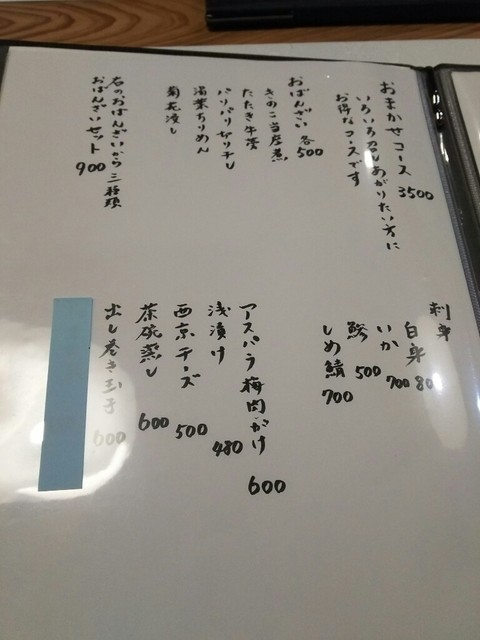 おまかせコース 3500
いろいろ召しあがりたい方に
お得なコースです
おばんざい 各500
きのこ当座煮
たたき牛蒡
パリパリ切り干し
湯葉ちりめん
菊花浸し
右のおばんざいから三種類
おばんざいセット 900
刺身
白身 80
いか 700
鯵 500
しめ鯖 700
アスパラ梅肉がけ 600
浅漬け 480
西京チーズ 500
茶碗蒸し 600
出し巻き玉子 600